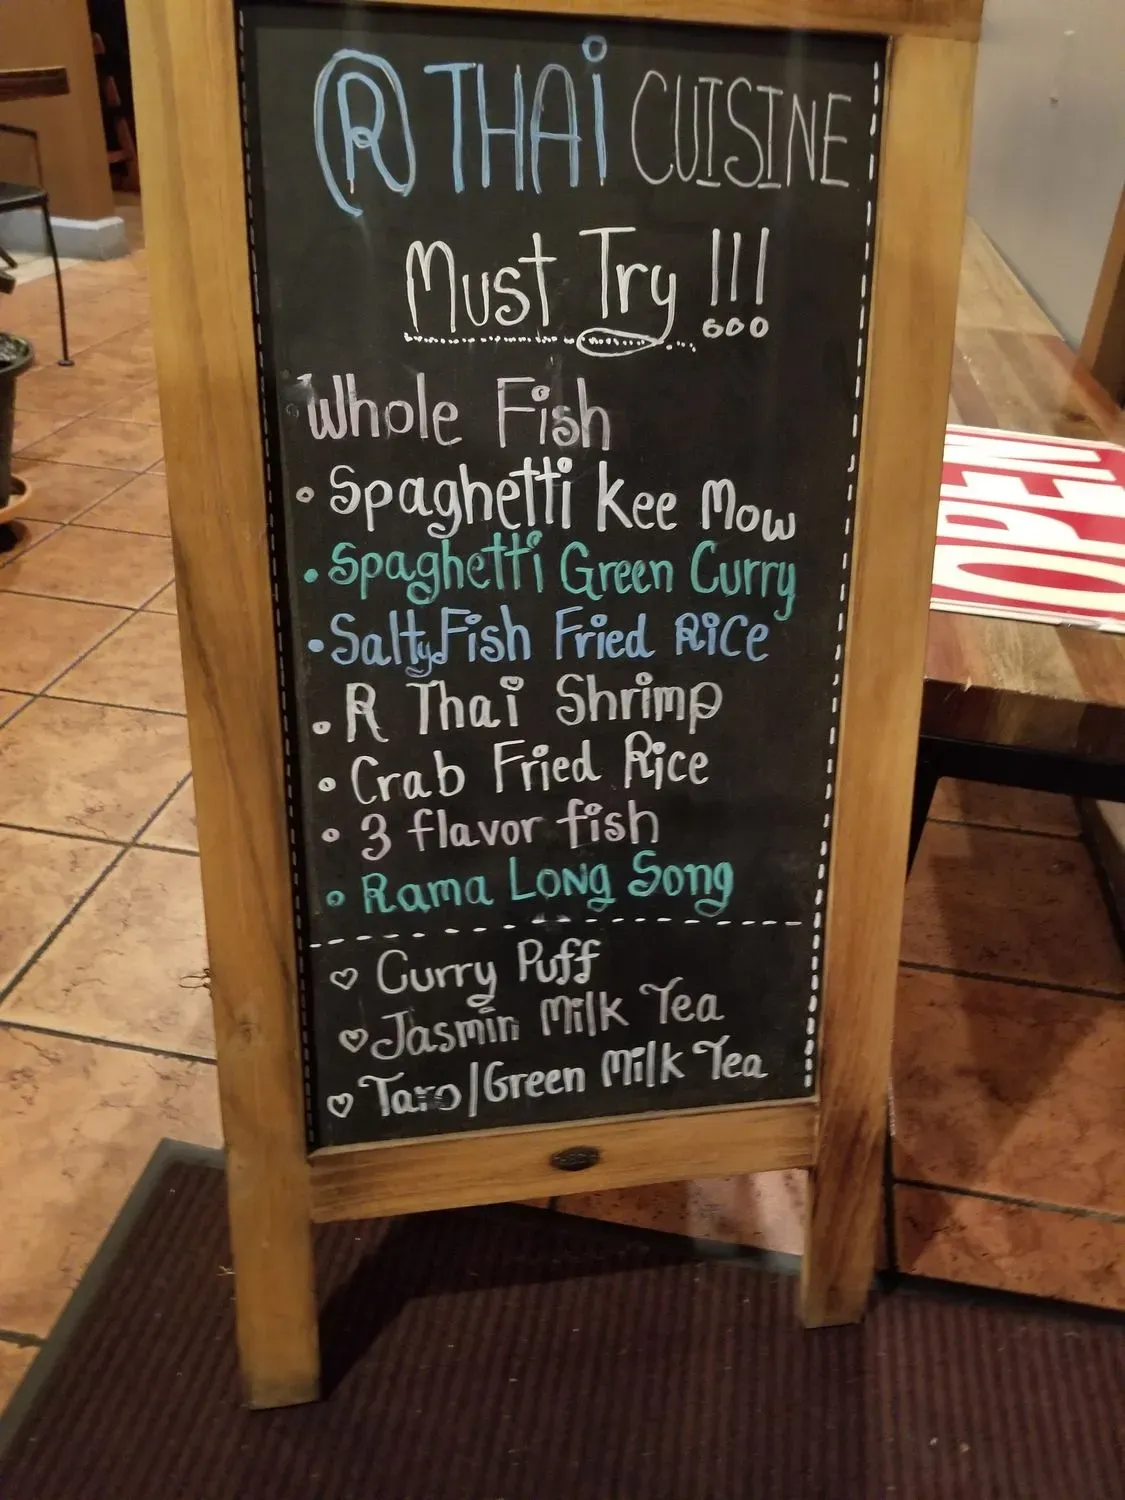 R THAi CUISINE
Must Try !!!
Whole Fish
• Spaghetti kee Mow
• Spaghetti Green Curry
• Salty Fish Fried RiCe
• R Thai Shrimp
• Crab Fried Rice
• 3 flavor fish
• Rama Long Song
♡ Curry Puff
♡ Jasmin Milk Tea
♡ Taro/Green Milk Tea
OPEN